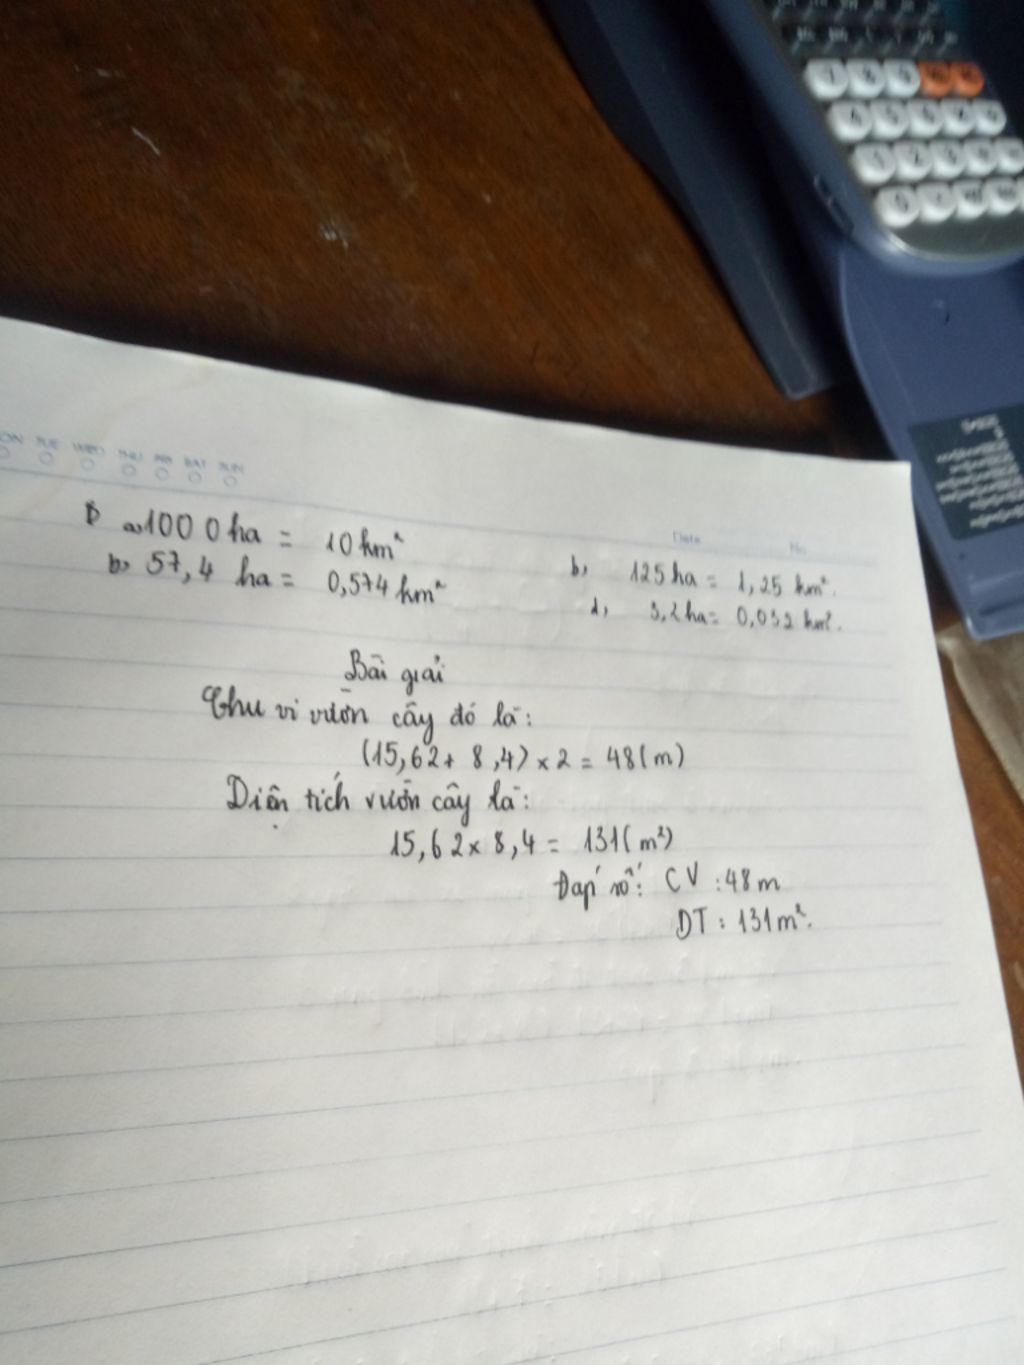 MON TUE WED THU FRI SAT SUN
Date No
1) a, 1000 ha = 10 km²
b, 125 ha = 1,25 km².
b, 57,4 ha = 0,574 km²
d, 3,2 ha = 0,032 km².
Bài giải
Chu vi vườn cây đó là:
(15,62 + 8,4) x 2 = 48 (m)
Diện tích vườn cây là:
15,62 x 8,4 = 131 (m²)
Đáp số: CV : 48 m
DT : 131 m².